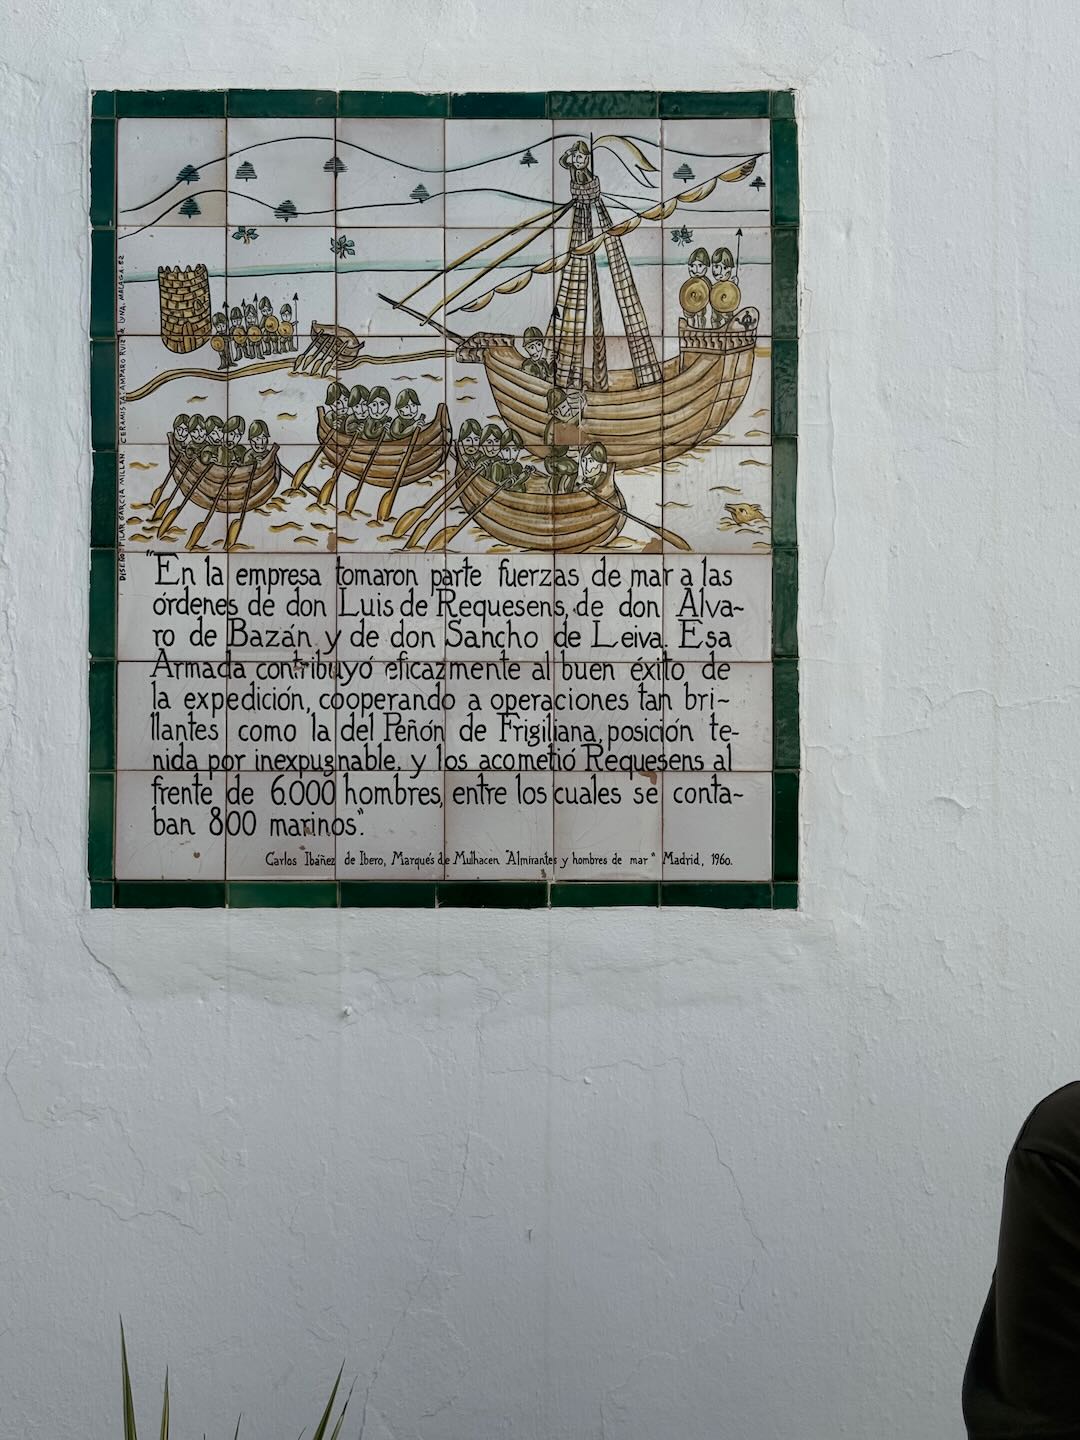 DISEÑO: PILAR GARCIA MILLAN. CERAMISTA: AMPARO RUIZ DE LUNA. MALAGA. 82
"En la empresa tomaron parte fuerzas de mar a las
órdenes de don Luis de Requesens, de don Álva-
ro de Bazán y de don Sancho de Leiva. Esa
Armada contribuyó eficazmente al buen éxito de
la expedición, cooperando a operaciones tan bri-
llantes como la del Peñón de Frigiliana, posición te-
nida por inexpugnable, y los acometió Requesens al
frente de 6.000 hombres, entre los cuales se conta-
ban 800 marinos".
Carlos Ibáñez de Ibero, Marqués de Mulhacen. "Almirantes y hombres de mar" Madrid, 1960.